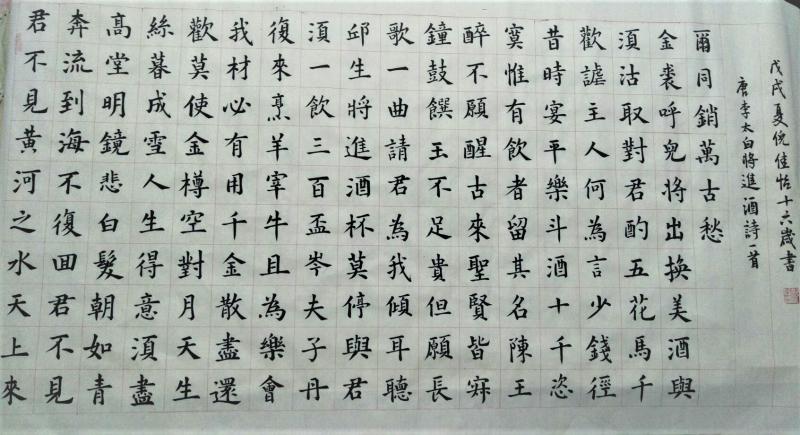 君不見黃河之水天上來
奔流到海不復囬君不見
高堂明鏡悲白髮朝如青
絲暮成雪人生得意湏盡
歡莫使金樽空對月天生
我材必有用千金散盡還
復來烹羊宰牛且為樂會
湏一飲三百盃岑夫子丹
邱生將進酒杯莫停與君
歌一曲請君為我傾耳聽
鐘鼓饌玉不足貴但願長
醉不願醒古來聖賢皆寂
寞惟有飲者留其名陳王
昔時宴平樂斗酒十千恣
歡謔主人何為言少錢徑
湏沽取對君酌五花馬千
金裘呼兒將出換美酒與
爾同銷萬古愁
唐李太白將進酒詩一首
戊戌夏倪佳怡十六歲書